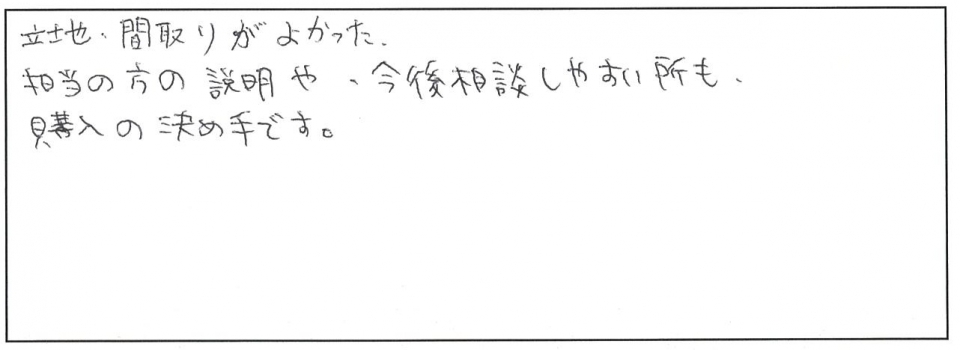 立地・間取りがよかった.
担当の方の説明や、今後相談しやすい所も、
購入の決め手です。